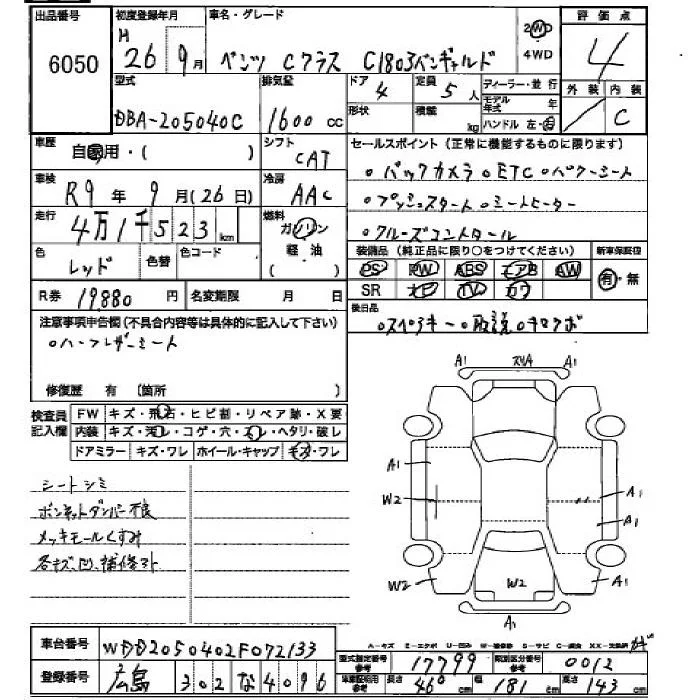 出品番号 初度登録年月 車名・グレード 評価点
6050 H 26 9月 ベンツ Cクラス C180ｽﾊﾞﾝｷﾞｬﾙﾄﾞ 2WD 4WD 4
型式 排気量 ドア 定員 ディーラー・並行 外装 内装
DBA-205040C 1600cc 4 5人 モデル年式 年 C
形状 積載 kg ハンドル 左・右
車歴 自家用・( ) シフト CAT セールスポイント(正常に機能するものに限ります)
車検 R9年 9月(26日) 冷房 AAC ○バックカメラ ○ETC ○パワーシート
○プッシュスタート ○シートヒーター
走行 4万1千523km 燃料 ガソリン ○クルーズコントロール
色 レッド 色替 色コード 軽油 ( ) 装備品(純正品に限り○をつけてください) 新車保証書
PS PW ABS エアB AW 有・無
R券 19880円 名変期限 月 日 SR ナビ TV カワ
注意事項申告欄(不具合内容等は具体的に記入して下さい) 後日品
○ハーフレザーシート ○スペアキー ○取説 ○キロクボ
修復歴 有 (箇所 )
検査員記入欄 FW キズ・飛石・ヒビ割・リペア跡・X要
内装 キズ・汚レ・コゲ・穴・スレ・ヘタリ・破レ
ドアミラー キズ・ワレ ホイール・キャップ キズ・ワレ
シートシミ
ボンネットダンパー不良
メッキモールくすみ
各キズ、凹、補修跡
A1 スリA A1
A1
W2 A1
A1
W2 W2 A1
A1
A-キズ E-エクボ U-凹み W-補修跡 S-サビ C-腐食 XX-交換済
車台番号 WDD2050402F072133 型式指定番号 参考 17799 類別区分番号 参考 0012
登録番号 広島 302 な 4096 車庫証明用 参考 長さ 460cm 幅 181cm 高さ 143cm